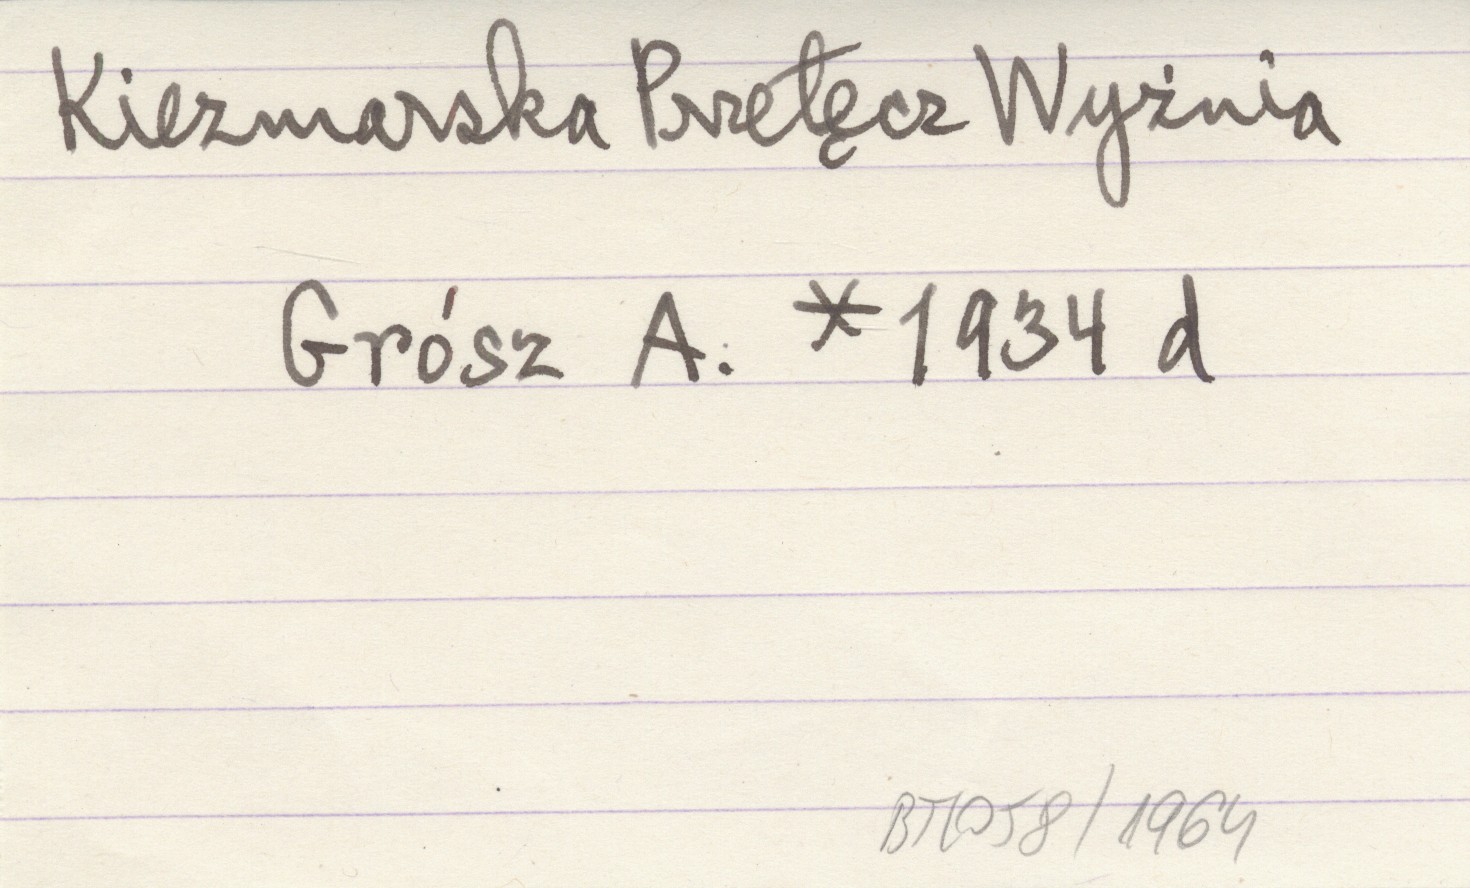 Kiezmarska Przełęcz Wyżnia
Grósz A. *1934 d
/1964